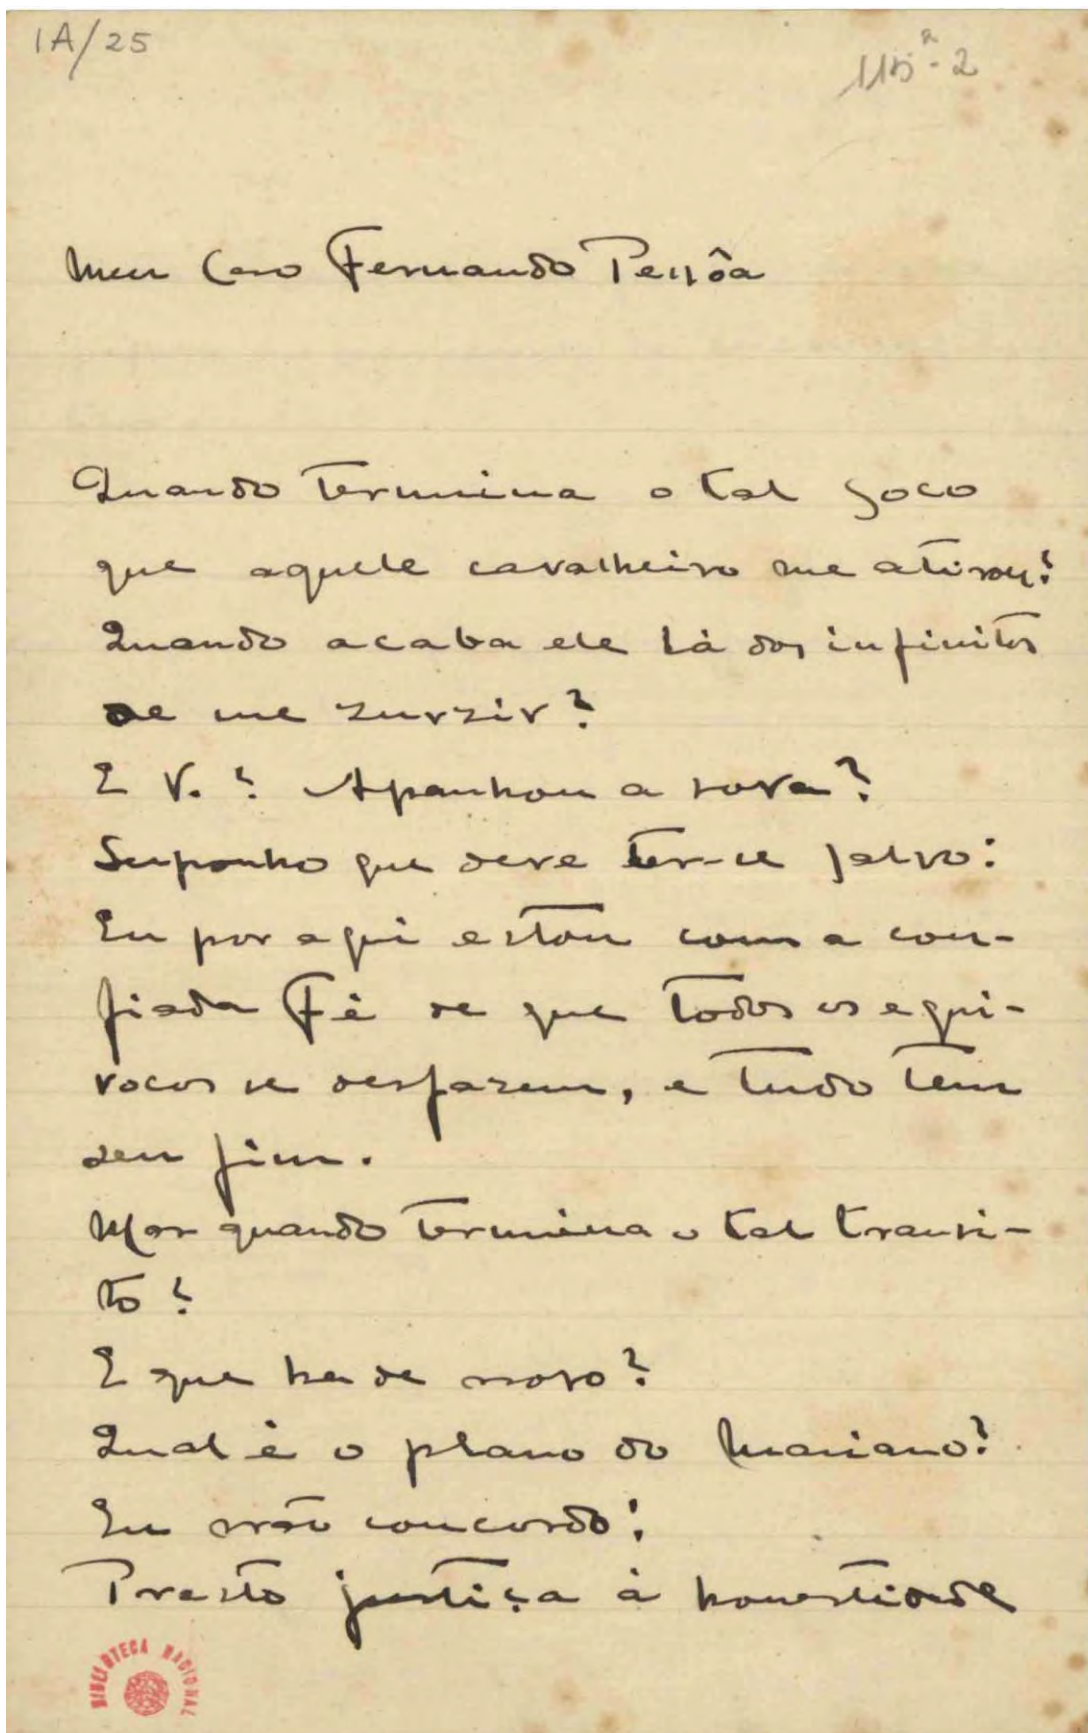 1A/25
115ª-2
Meu Caro Fernando Pessôa
Quando termina o tal soco
que aquele cavalheiro me atirou?
Quando acaba ele lá dos infinitos
de me zurzir?
E V.? Apanhou a sova?
Suponho que deve ter-se salvo:
Eu por aqui estou com a con-
fiada Fé de que todos os equi-
vocos se desfazem, e tudo tem
seu fim.
Mas quando termina o tal transi-
to?
E que ha de novo?
Qual é o plano do Mariano?
Eu não concordo:
Presto justiça à honestidade
BIBLIOTECA NACIONAL